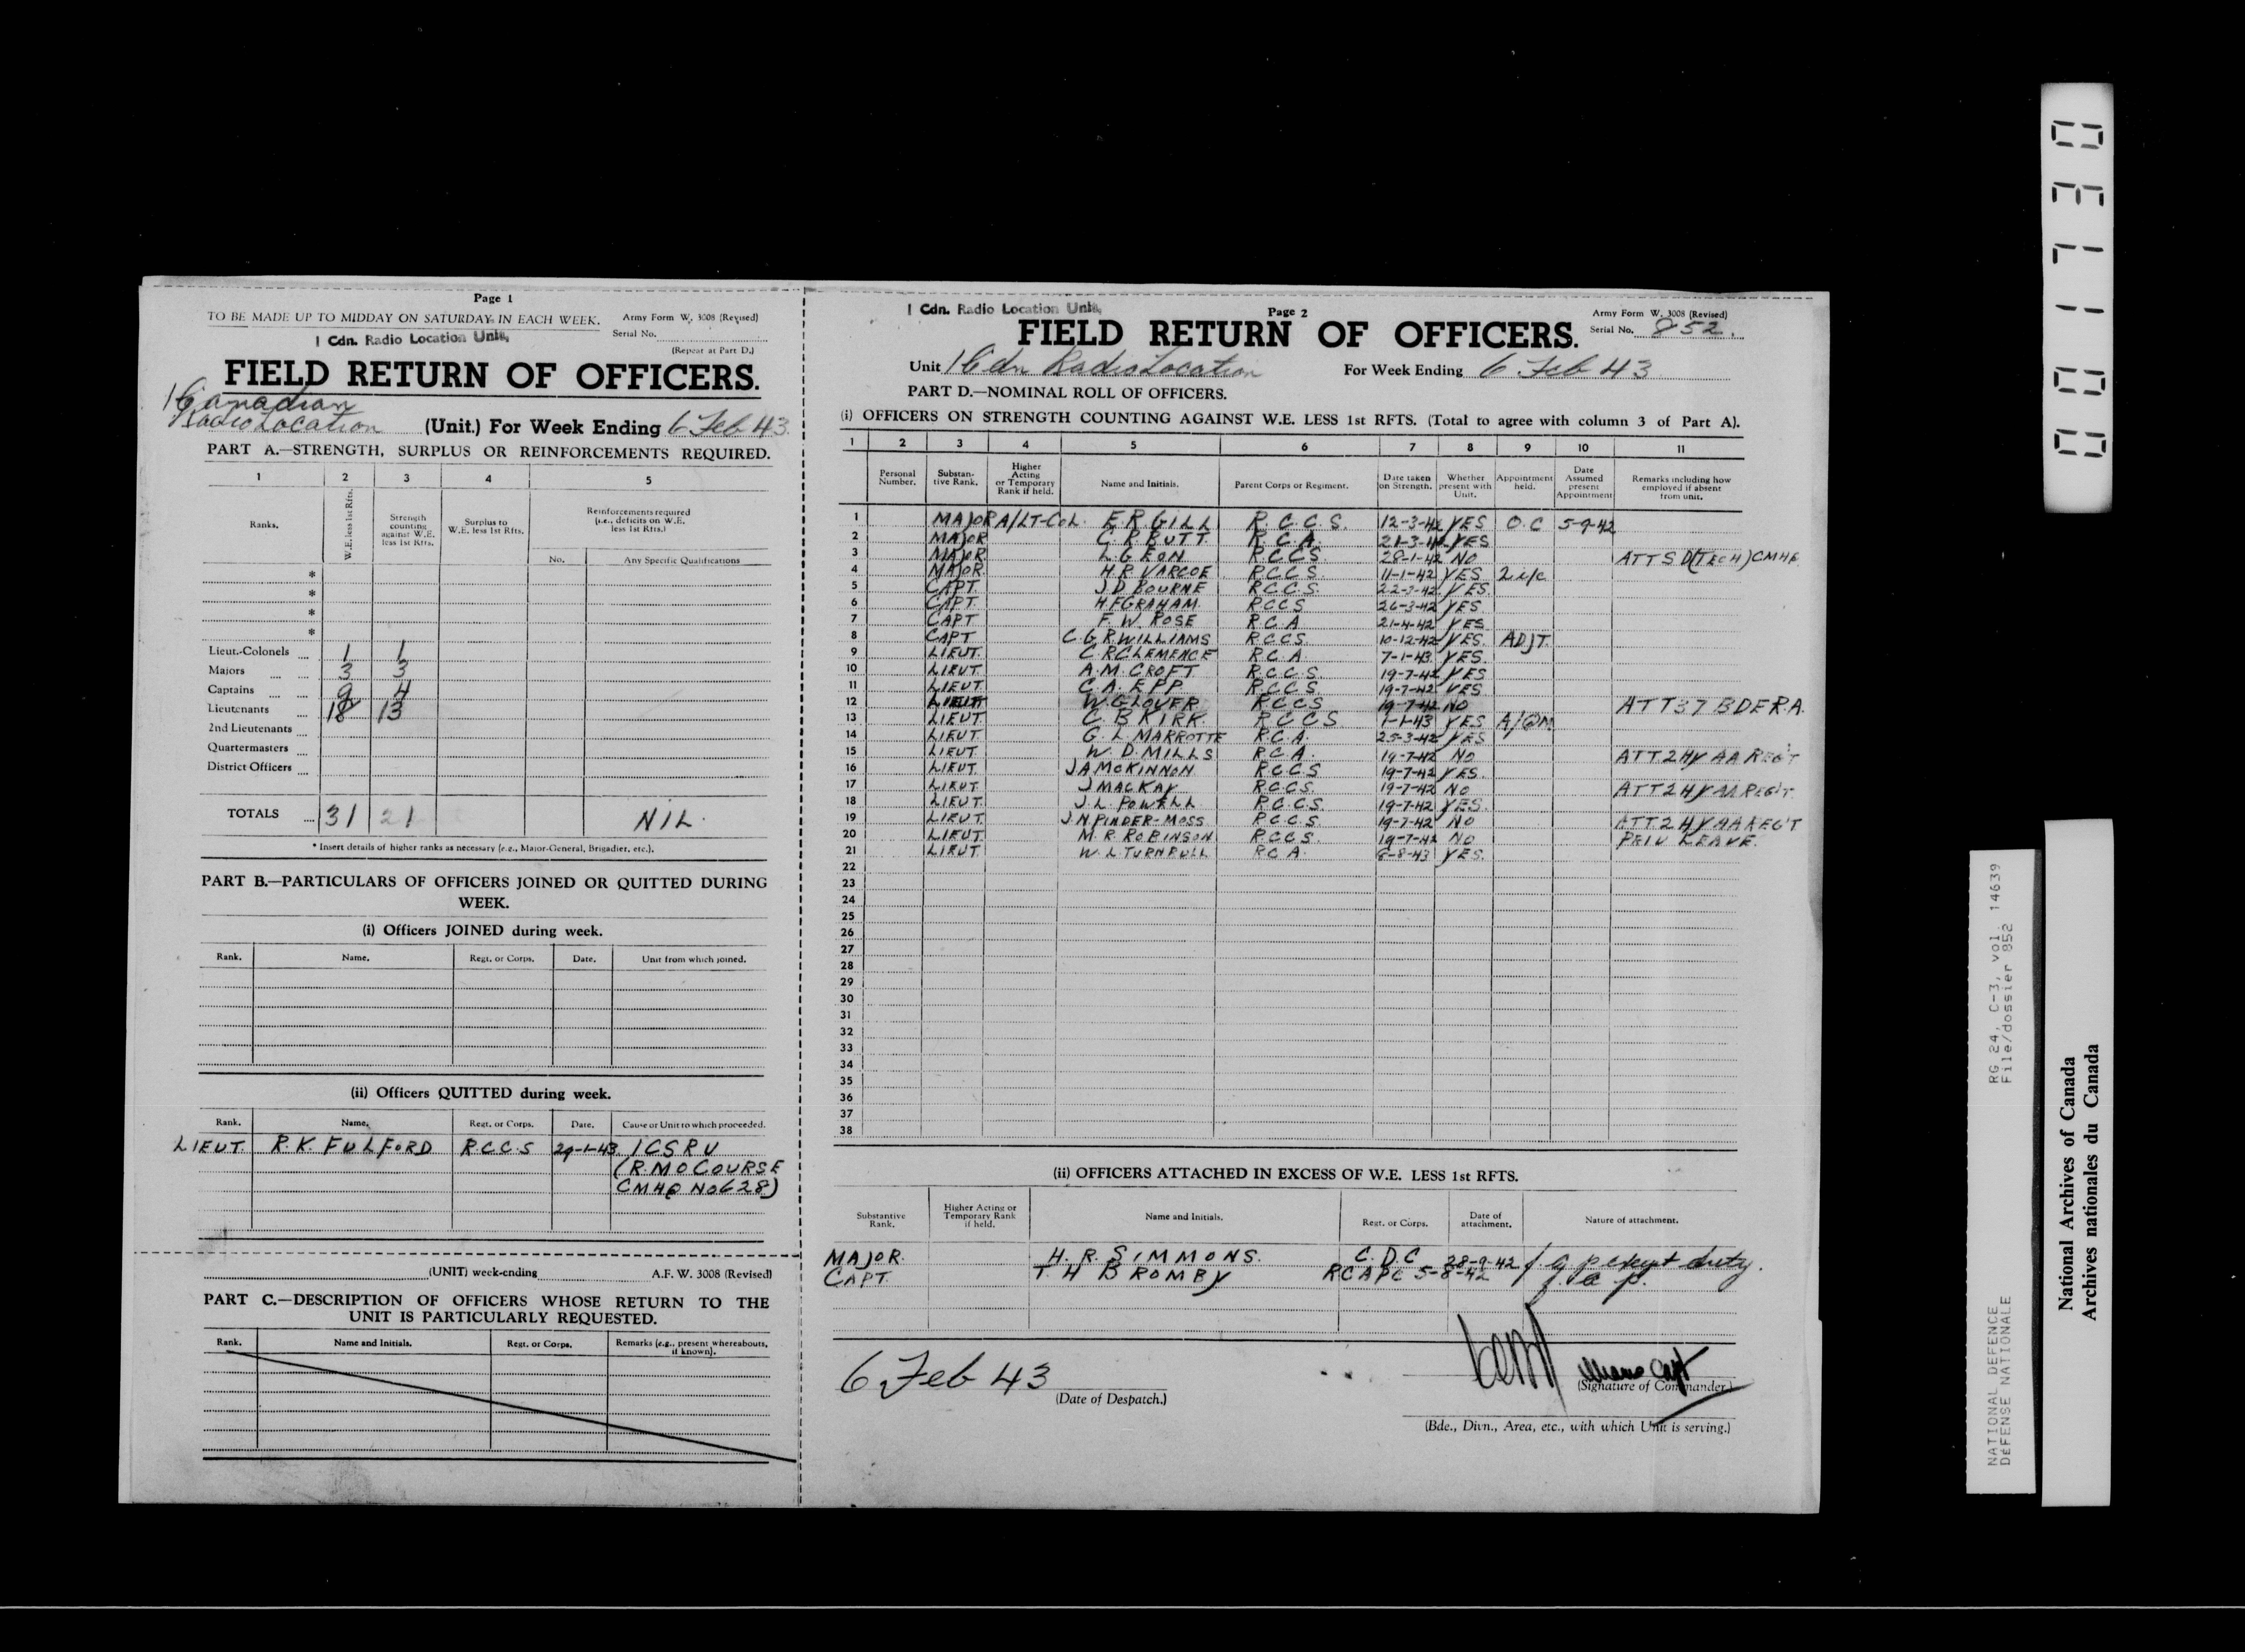 Page 1
TO BE MADE UP TO MIDDAY ON SATURDAY IN EACH WEEK. Army Form W. 3008 (Revised)
1 Cdn. Radio Location Unit, Serial No.
(Repeat at Part D.)
FIELD RETURN OF OFFICERS.
1 Canadian
Radio Location (Unit.) For Week Ending 6 Feb 43.
PART A.—STRENGTH, SURPLUS OR REINFORCEMENTS REQUIRED.
1 2 3 4 5
Ranks. W.E. less 1st Rfts. Strength counting against W.E. less 1st Rfts. Surplus to W.E. less 1st Rfts. Reinforcements required (i.e., deficits on W.E. less 1st Rfts.)
No. Any Specific Qualifications
*
*
*
*
Lieut.-Colonels .... 1 1
Majors .... 3 3
Captains .... 9 4
Lieutenants .... 18 13
2nd Lieutenants ....
Quartermasters ....
District Officers ....
TOTALS .... 31 21 NIL.
* Insert details of higher ranks as necessary (e.g., Major-General, Brigadier, etc.).
PART B.—PARTICULARS OF OFFICERS JOINED OR QUITTED DURING
WEEK.
(i) Officers JOINED during week.
Rank. Name. Regt. or Corps. Date. Unit from which joined.
(ii) Officers QUITTED during week.
Rank. Name. Regt. or Corps. Date. Cause or Unit to which proceeded.
LIEUT. R.K. FULFORD R.C.C.S 29-1-43 1CSRU
(R.M.O COURSE
CMHQ NO 628)
(UNIT) week-ending A.F. W. 3008 (Revised)
PART C.—DESCRIPTION OF OFFICERS WHOSE RETURN TO THE
UNIT IS PARTICULARLY REQUESTED.
Rank. Name and Initials. Regt. or Corps. Remarks (e.g., present whereabouts, if known).
1 Cdn. Radio Location Unit, Page 2 Army Form W. 3008 (Revised)
FIELD RETURN OF OFFICERS. Serial No. 852.
Unit 1 Cdn Radio Location For Week Ending 6 Feb 43
PART D.—NOMINAL ROLL OF OFFICERS.
(i) OFFICERS ON STRENGTH COUNTING AGAINST W.E. LESS 1st RFTS. (Total to agree with column 3 of Part A).
1 2 3 4 5 6 7 8 9 10 11
Personal Number. Substantive Rank. Higher Acting or Temporary Rank if held. Name and Initials. Parent Corps or Regiment. Date taken on Strength. Whether present with Unit. Appointment held. Date Assumed present Appointment Remarks including how employed if absent from unit.
1 MAJOR A/LT-COL. E.R. GILL R.C.C.S. 12-3-42 YES O.C 5-9-42
2 MAJOR C.P. BUTT. R.C.A. 21-3-42 YES
3 MAJOR L.G. EON R.C.C.S 28-1-42 NO ATT S D(TECH) CMHQ
4 MAJOR H.R. VARCOE R.C.C.S. 11-1-42 YES 2 i/c
5 CAPT. J.D. BOURNE R.C.C.S. YES
6 CAPT. H.F. GRAHAM. R.C.C.S 26-3-42 YES
7 CAPT F.W. ROSE R.C.A 21-4-42 YES
8 CAPT C.G.R. WILLIAMS R.C.C.S. 10-12-42 YES. ADJT.
9 LIEUT. C.R. CLEMENCE R.C.A. 7-1-43 YES.
10 LIEUT. A.M. CROFT R.C.C.S. 19-7-42 YES
11 LIEUT. C.A. EPP R.C.C.S. 19-7-42 YES
12 LIEUT W. GLOVER R.C.C.S 19-7-42 NO ATT 37 BDE R.A.
13 LIEUT. C.B. KIRK. R.C.C.S 1-1-43 YES A/QM
14 LIEUT. G.L. MARROTTE R.C.A. 25-3-42 YES
15 LIEUT. W.D. MILLS R.C.A. 19-7-42 NO ATT. 2 HY AA REG'T
16 LIEUT. J.A. McKINNON R.C.C.S 19-7-42 YES.
17 LIEUT. J MACKAY R.C.C.S. 19-7-42 NO ATT 2 HY AA REG'T.
18 LIEUT. J.L. POWELL R.C.C.S. 19-7-42 YES.
19 LIEUT. J.N. PINDER-MOSS R.C.C.S. 19-7-42 NO ATT. 2 HY AA REG'T
20 LIEUT. M.R. ROBINSON R.C.C.S. 19-7-42 NO PRIV LEAVE.
21 LIEUT. W.L. TURNBULL R.C.A. YES.
22
23
24
25
26
27
28
29
30
31
32
33
34
35
36
37
38
(ii) OFFICERS ATTACHED IN EXCESS OF W.E. LESS 1st RFTS.
Substantive Rank. Higher Acting or Temporary Rank if held. Name and Initials. Regt. or Corps. Date of attachment. Nature of attachment.
MAJOR. H.R. SIMMONS. C.D.C 28-9-42 duty.
CAPT. T H BROMBY RCAPC 5-8-42
6 Feb 43
(Date of Despatch.)
Capt
(Signature of Commander.)
(Bde., Divn., Area, etc., with which Unit is serving.)
001730
RG 24, C-3, vol. 14639
File/dossier 852
NATIONAL DEFENCE
DÉFENSE NATIONALE
National Archives of Canada
Archives nationales du Canada